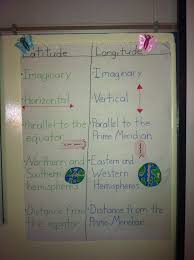 Latitude Longitude
Imaginary Imaginary
Horizontal Vertical
Parallel to the Parallel to the
equator Prime Meridian
Northern and Eastern and
Southern Western
hemispheres Hemispheres
Distance from Distance from the
the equator Prime Meridian